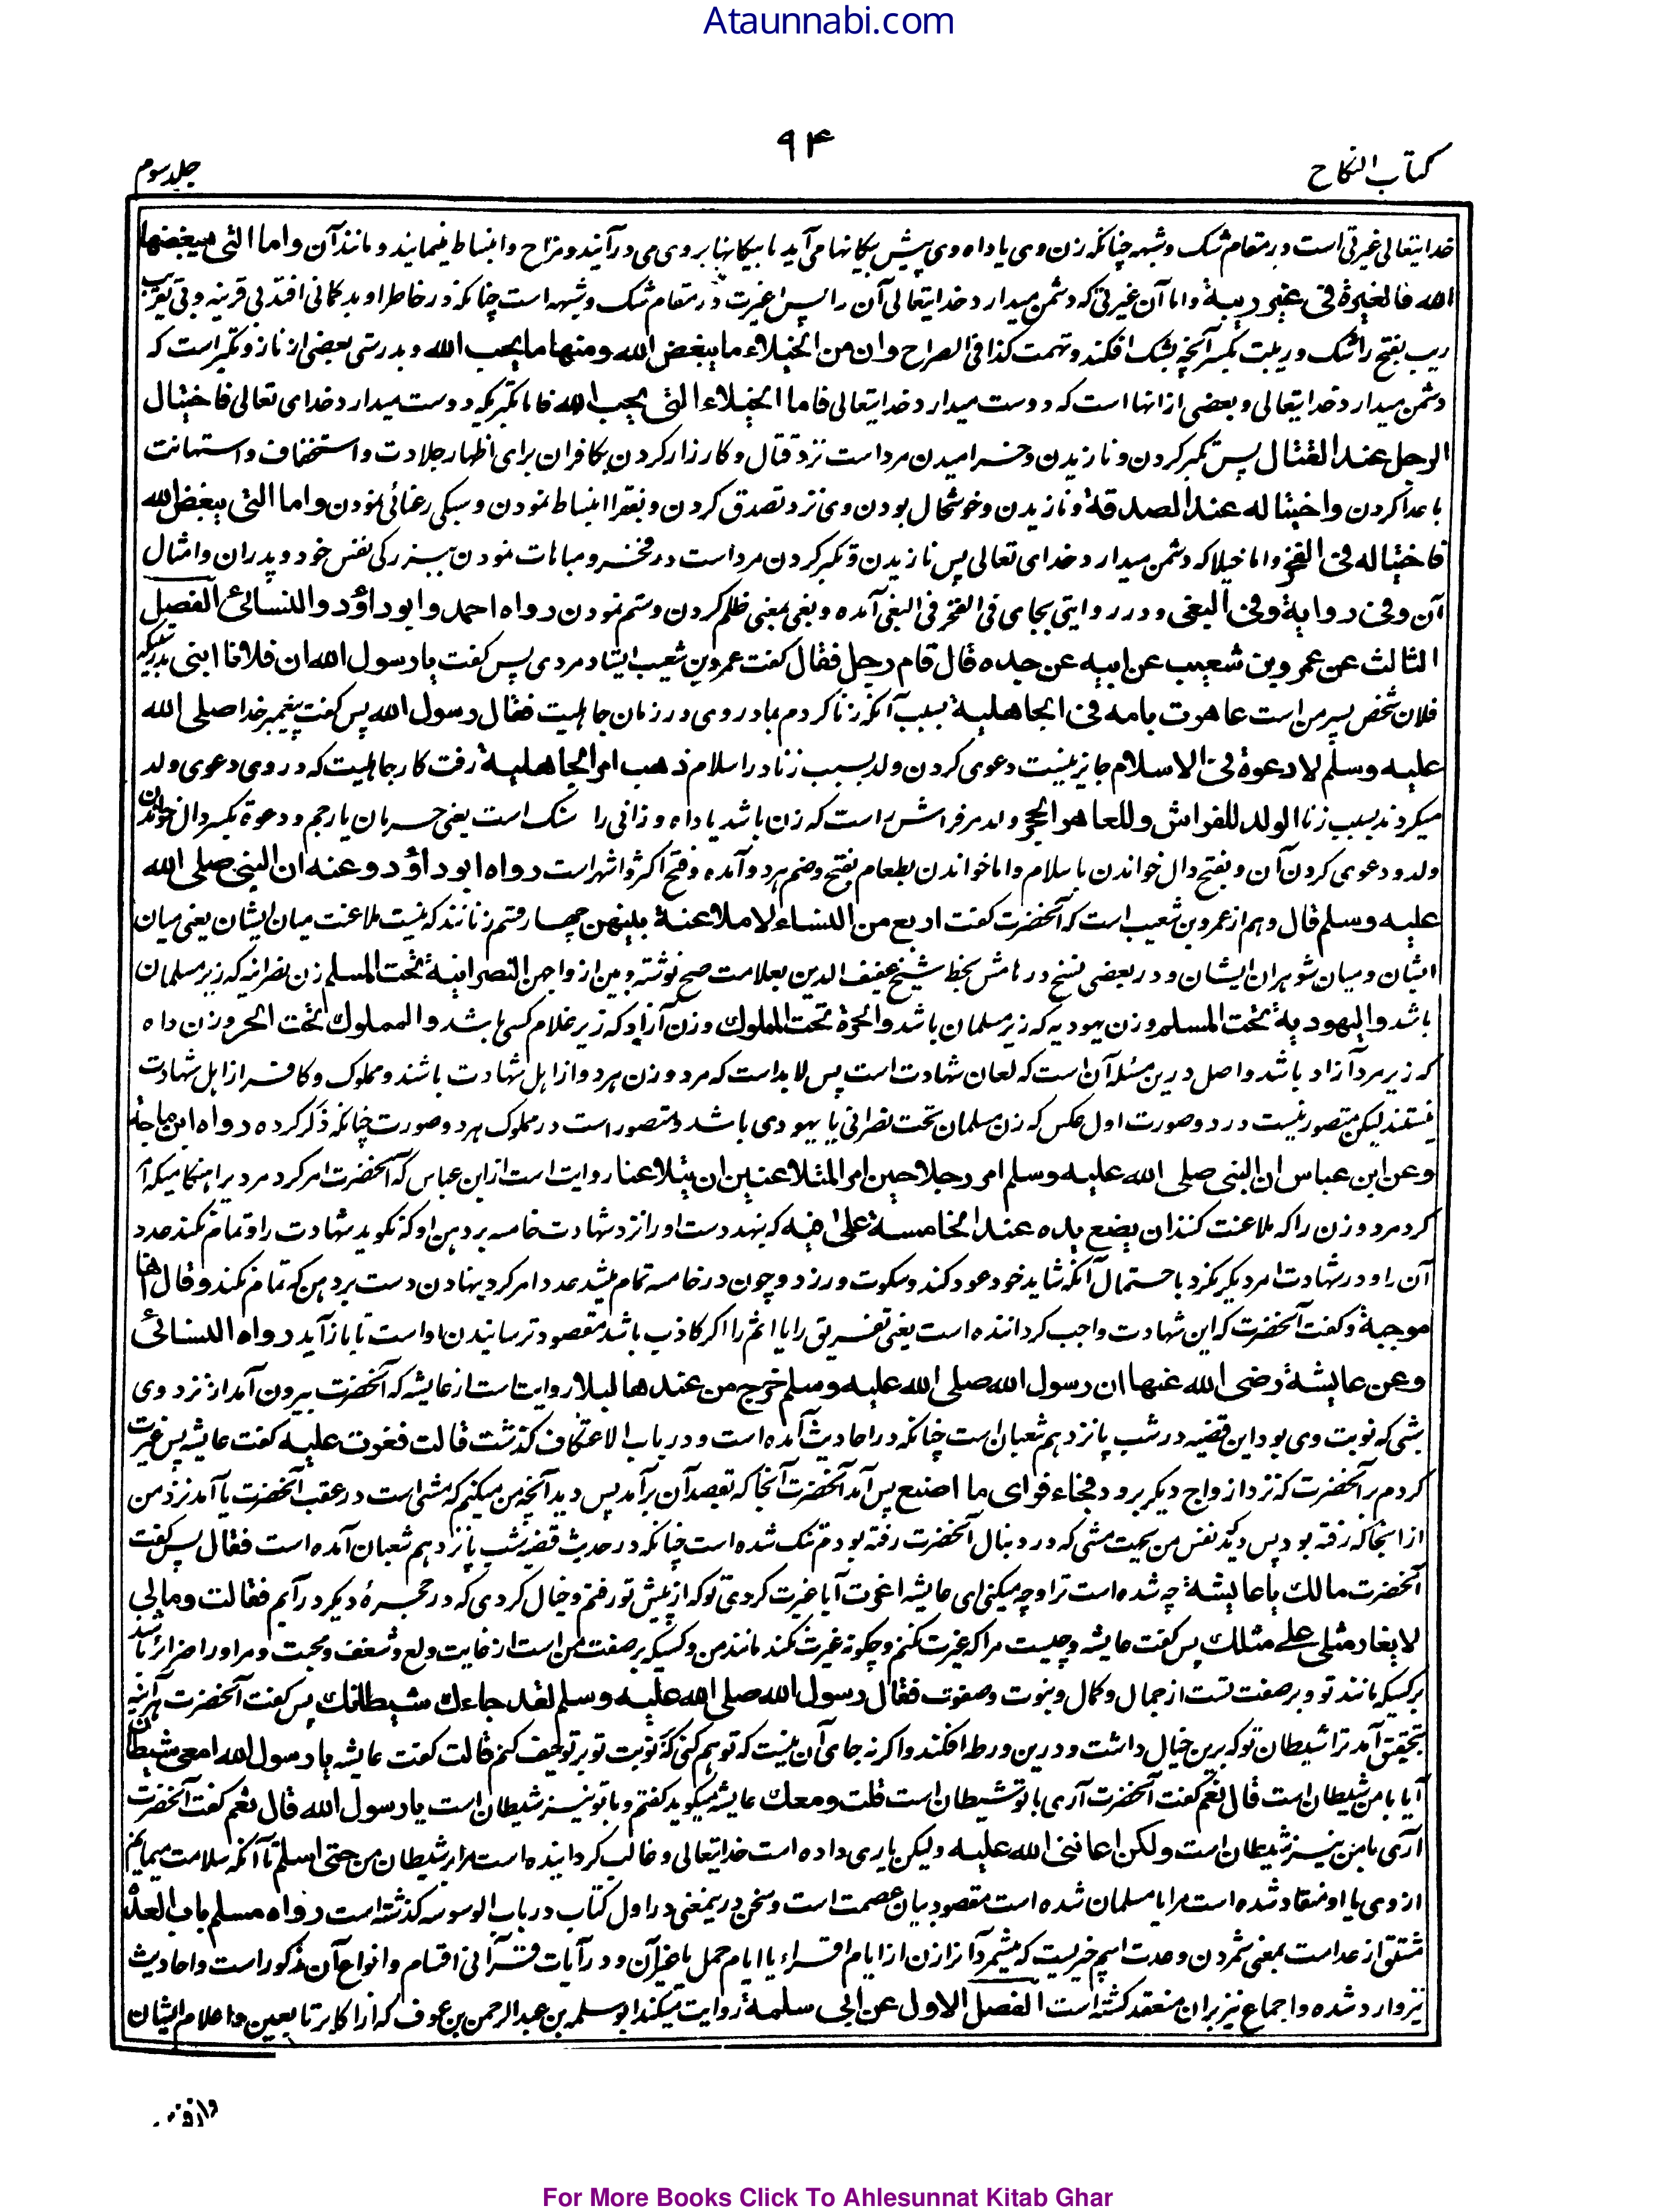 Ataunnabi.com
۹۴
کتاب النکاح
جلد سوم
خدایتعالی غیرتی است در مقام شک و شبهه چنانکه زن وی یا داه وی پیش بیگانها می‌آید یا بیگانها بروی می در آیند و مزاح و انبساط مینمایند و مانند آن واما التی یبغضها
الله فالغیرة فی غیر ریبة واما آن غیرتی که دشمن میدارد خدایتعالی آن را پس غیرت در مقام شک و شبهه است چنانکه در خاطر او بدگمانی افتد بی قرینه وبی تقریب
ریب بفتح را شک و ریبت بکسر آنچه بشک افکند و تهمت کذا فی الصراح وان من الخیلاء ما یبغض الله ومنها ما یحب الله و بدرستی بعضی از ناز و تکبر است که
دشمن میدارد خدایتعالی و بعضی ازانها است که دوست میدارد خدایتعالی فاما الخیلاء التی یحب الله فاما تکبریکه دوست میدارد خدای تعالی فاختیال
الرجل عند القتال پس تکبر کردن و نازیدن وخرامیدن مرد است نزد قتال و کارزار کردن بکافران برای اظهار جلادت و استخفاف و استهانت
باعدا کردن واختیاله عند الصدقة ونازیدن وخوشحال بودن وی نزد تصدق کردن و بفقرا انبساط نمودن و سبکی رغنائی نمودن واما التی یبغض الله
فاختیاله فی الفخر واما خیلا که دشمن میدارد خدای تعالی پس نازیدن و تکبر کردن مرد است در فخر و مباهات نمودن ببزرگی نفس خود و پدران وامثال
آن وفی روایة وفی البغی و در روایتی بجای فی الفخر فی البغی آمده و بغی بمعنی ظلم کردن و ستم نمودن رواه احمد وابوداؤد والنسائی الفصل
الثالث عن عمرو بن شعیب عن ابیه عن جده قال قام رجل فقال گفت عمرو بن شعیب ایستاد مردی پس گفت یا رسول الله ان فلانا ابنی بدرستیکه
فلان شخص پسر من است عاهرت بامه فی الجاهلیة بسبب آنکه زنا کردم بمادر وی در زمان جاهلیت فقال رسول الله پس گفت پیغمبر خدا صلی الله
علیه وسلم لا دعوة فی الاسلام جایز نیست دعوی کردن ولد بسبب زنا در اسلام ذهب امر الجاهلیة رفت کار جاهلیت که در وی دعوی ولد
میکردند بسبب زنا الولد للفراش وللعاهر الحجر ولد مر فراش است که زن باشد یا داه و زانی را سنگ است یعنی حرمان یا رجم و دعوة بکسر دال خواندن
ولد و دعوی کردن آن و بفتح دال خواندن باسلام واما خواندن بطعام بفتح وضم هر دو آمده و فتح اکثر و اشهر است رواه ابوداؤد وعنه ان النبی صلی الله
علیه وسلم قال وهم از عمرو بن شعیب است که آنحضرت گفت اربع من النساء لا ملاعنة بینهن چهار قسم زنانند که نیست ملاعنت میان ایشان یعنی میان
ایشان و میان شوهران ایشان و در بعضی نسخ در هامش بخط شیخ عفیف الدین بعلامت صح نوشته وبین ازواجهن النصرانیة تحت المسلم زن نصرانیه که زیر مسلمان
باشد والیهودیة تحت المسلم وزن یهودیه که زیر مسلمان باشد والحرة تحت المملوک وزن آزاد که زیر غلام کسی باشد والمملوک تحت الحر وزن داه
که زیر مرد آزاد باشد واصل درین مسئله آن است که لعان شهادت است پس لابد است که مرد و زن هر دو از اهل شهادت باشند و مملوک و کافر از اهل شهادت
نیستند لیکن متصور نیست در دو صورت اول عکس که زن مسلمان تحت نصرانی یا یهودی باشد و متصور است در مملوک هر دو صورت چنانکه ذکر کرده رواه ابن ماجة
وعن ابن عباس ان النبی صلی الله علیه وسلم امر رجلا حین امر المتلاعنین ان یتلاعنا روایت است از ابن عباس که آنحضرت امر کرد مردیرا هنگامیکه امر
کرد مرد و زن را که ملاعنت کنند ان یضع یده عند الخامسة علی فیه که بنهد دست او را نزد شهادت خامسه بردهن او که نگوید شهادت را و تمام نکند عدد
آن را و در شهادت امر دیگر نکرد باحتمال آنکه شاید خود عود کند و سکوت ورزد و چون در خامسه تمام میشد عدد امر کرد بنهادن دست بردهن که تمام نکند وقال انها
موجبة وگفت آنحضرت که این شهادت واجب گرداننده است یعنی تفریق را یا اثم را اگر کاذب باشد مقصود ترسانیدن او است تا باز آید رواه النسائی
وعن عایشة رضی الله عنها ان رسول الله صلی الله علیه وسلم خرج من عندها لیلا روایت است از عایشه که آنحضرت بیرون آمد از نزد وی
شبی که نوبت وی بود این قضیه در شب پانزدهم شعبان است چنانکه در احادیث آمده است و در باب الاعتکاف گذشت قالت فغرت علیه گفت عایشه پس غیرت
کردم بر آنحضرت که نزد ازواج دیگر برود فجاء فرای ما اصنع پس آمد آنحضرت آنجا که بقصد آن برآمد پس دید آنچه من میکنم که مشی است در عقب آنحضرت یا آمد نزد من
از انجا که رفته بود پس دید نفس من بجهت مشی که در دنبال آنحضرت رفته بودم تنگ شده است چنانکه در حدیث قضیه شب پانزدهم شعبان آمده است فقال پس گفت
آنحضرت مالک یا عایشة چه شده است ترا و چه میکنی ای عایشه اغرت آیا غیرت کردی تو که از پیش تو رفتم و خیال کردی که در حجرهٔ دیگر در آیم فقالت ومالی
لا یغار مثلی علی مثلک پس گفت عایشه و چیست مرا که غیرت نکنم و چگونه غیرت نکند مانند من و کسیکه بر صفت من است از غایت ولع و شغف و محبت و مر او را ضرائر باشد
بر کسیکه مانند تو و بر صفت تست از جمال و کمال و نبوت وصفوت فقال رسول الله صلی الله علیه وسلم لقد جاءک شیطانک پس گفت آنحضرت هر آئینه
بتحقیق آمد ترا شیطان تو که برین خیال داشت و درین ورطه افکند و اگر نه جای آن نیست که تو هم کنی که نوبت تو بر تو حیف کنم قالت گفت عایشه یا رسول الله امعی شیطان
آیا با من شیطان است قال نعم گفت آنحضرت آری با تو شیطان است قلت ومعک عایشه میگوید گفتم و با تو نیز شیطان است یا رسول الله قال نعم گفت آنحضرت
آری با من نیز شیطان است ولکن اعاننی الله علیه ولیکن یاری داده است خدایتعالی و غالب گردانیده است مرا بر شیطان من حتی اسلم تا آنکه سلامت میمانم
از وی یا او منقاد شده است مرا یا مسلمان شده است مقصود بیان عصمت است و سخن درینمعنی در اول کتاب در باب الوسوسه گذشته است رواه مسلم باب العدة
مشتق از عد است بمعنی شمردن و عدت اسم چیزیست که میشمرد آنرا زن از ایام اقراء یا ایام حمل یا غیر آن و در آیات قرآنی اقسام و انواع آن مذکور است و احادیث
نیز وارد شده و اجماع نیز بران منعقد گشته است الفصل الاول عن ابی سلمة روایت میکند ابو سلمه بن عبد الرحمن بن عوف که از اکابر تابعین و اعلام ایشان
For More Books Click To Ahlesunnat Kitab Ghar